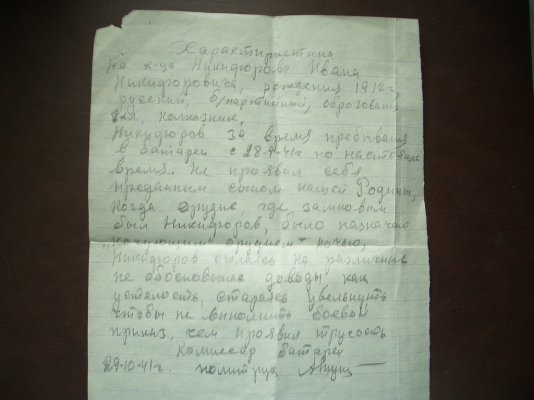 Характиристика
На к-ца Никифорова Ивана
Никифоровича, рождения 1912 г,
русский, б/партийный, образование
2 кл, колхозник,
Никифоров за время пребывания
в батареи с 28-9-41г по настоящие
время. Не проявил себя
преданным сыном нашей Родины,
когда орудие, где замковым
был Никифоров, было назначено
"кочующим орудием" ночью,
Никифоров сылаясь на различные
не обоснованые доводы как
усталость, старался увельнуть
чтобы не выполнить боевой
приказ, чем проявил трусость
Комиссар батареи
29-10-41г. политрук